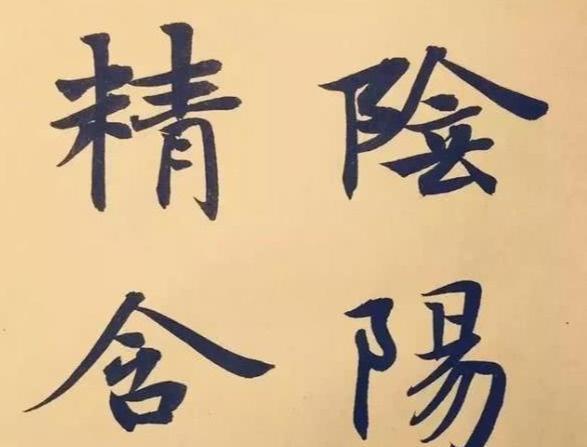 陰陽
精含